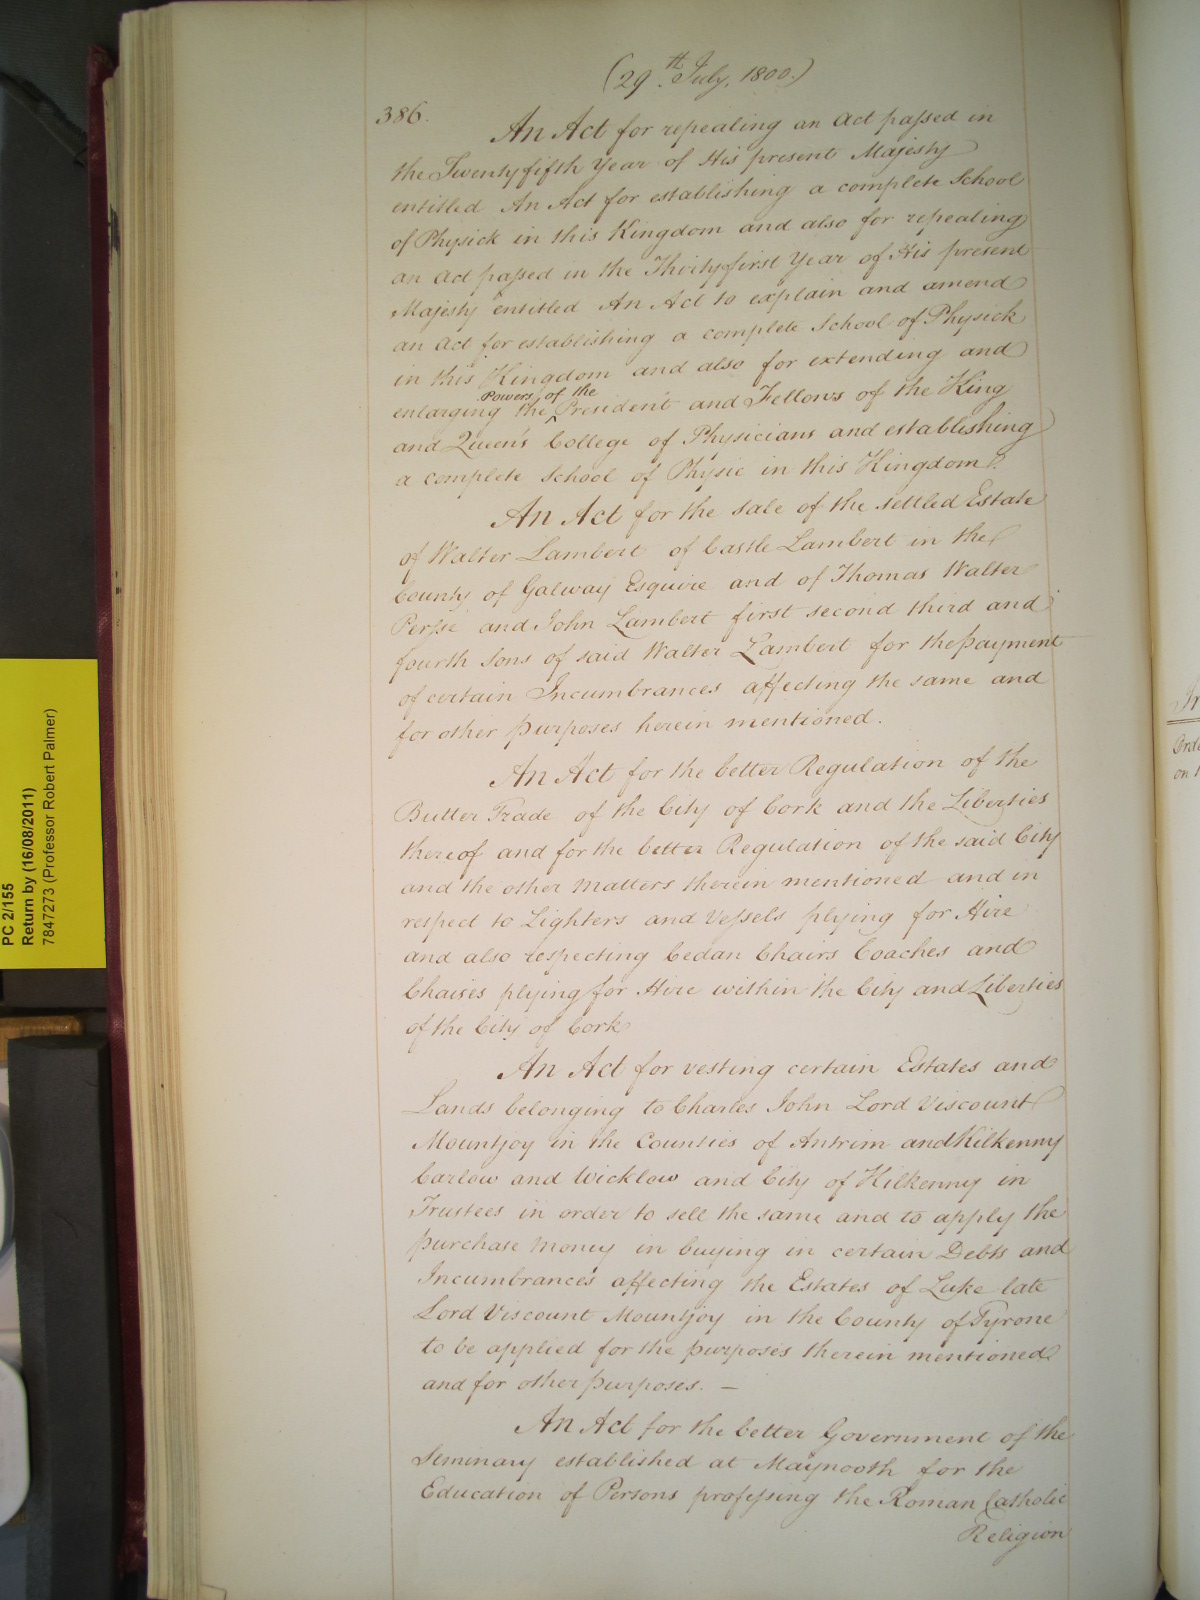 (29th July, 1800.)
386.
An Act for repealing an Act passed in
the Twenty fifth Year of His present Majesty
entitled An Act for establishing a complete School
of Physick in this Kingdom and also for repealing
an Act passed in the Thirty first Year of His present
Majesty entitled An Act to explain and amend
an Act for establishing a complete School of Physick
in this Kingdom and also for extending and
Powers of the
enlarging the ^ President and Fellows of the King
and Queen's College of Physicians and establishing
a complete School of Physic in this Kingdom.
An Act for the sale of the settled Estate
of Walter Lambert of Castle Lambert in the
County of Galway Esquire and of Thomas Walter
Persse and John Lambert first second third and
fourth Sons of said Walter Lambert for the payment
of certain Incumbrances affecting the same and
for other purposes herein mentioned.
An Act for the better Regulation of the
Butter Trade of the City of Cork and the Liberties
thereof and for the better Regulation of the said City
and the other Matters therein mentioned and in
respect to Lighters and Vessels plying for Hire
and also respecting Cedan Chairs Coaches and
Chaises plying for Hire within the City and Liberties
of the City of Cork
An Act for vesting certain Estates and
Lands belonging to Charles John Lord Viscount
Mountjoy in the Counties of Antrim and Kilkenny
Carlow and Wicklow and City of Kilkenny in
Trustees in order to sell the same and to apply the
purchase Money in buying in certain Debts and
Incumbrances affecting the Estates of Luke late
Lord Viscount Mountjoy in the County of Tyrone
to be applied for the purposes therein mentioned
and for other purposes. —
An Act for the better Government of the
Seminary established at Maynooth for the
Education of Persons professing the Roman Catholic
Religion
PC 2/155
Return by (16/08/2011)
7847273 (Professor Robert Palmer)